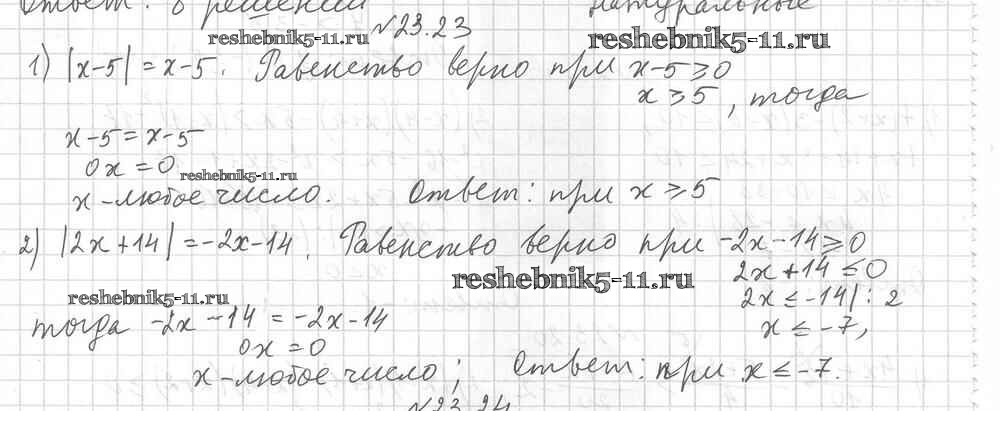 Ответ: в решении натуральные
№23.23
reshebnik5-11.ru reshebnik5-11.ru
1) |x-5| = x-5. Равенство верно при x-5≥0
x≥5, тогда
x-5=x-5
0x=0
reshebnik5-11.ru
x-любое число. Ответ: при x≥5
2) |2x+14|=-2x-14. Равенство верно при -2x-14≥0
reshebnik5-11.ru 2x+14≤0
reshebnik5-11.ru 2x≤-14|:2
тогда -2x-14=-2x-14 x≤-7,
0x=0
x-любое число; Ответ: при x≤-7.
№23.24